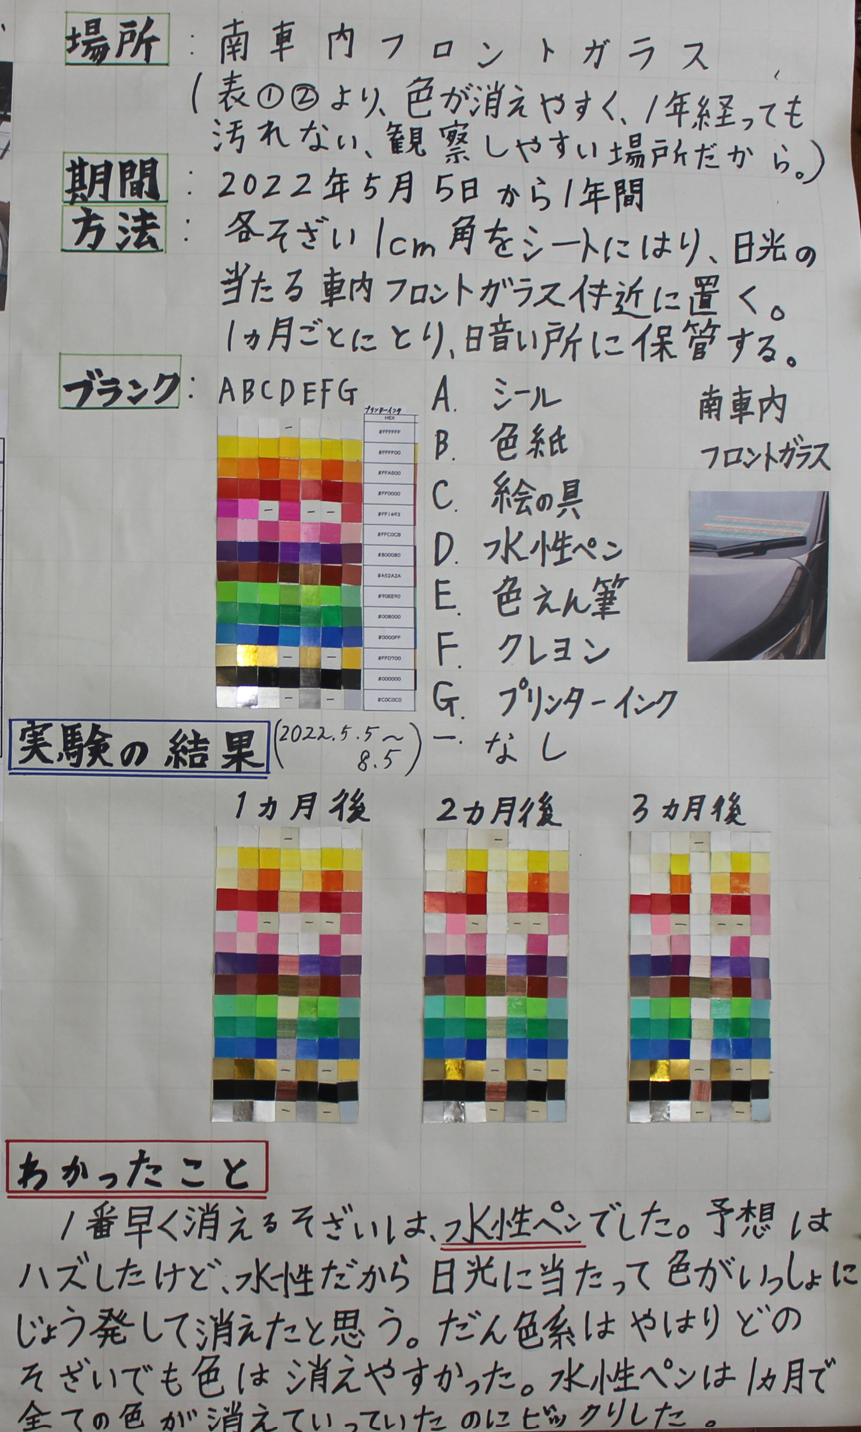 場所：南車内フロントガラス
（表①②より、色が消えやすく、1年経っても
汚れない、観察しやすい場所だから。）
期間：2022年5月5日から1年間
方法：各そざい1cm角をシートにはり、日光の
当たる車内フロントガラス付近に置く。
1ヵ月ごとにとり、暗い所に保管する。
ブランク：ABCDEFG
プリンターインク
HEX
#FFFFFF
#FFFF00
#FFA500
#FF0000
#FF1493
#FFC0CB
#800080
#A52A2A
#90EE90
#008000
#0000FF
#FFD700
#000000
#C0C0C0
A. シール
B. 色紙
C. 絵の具
D. 水性ペン
E. 色えん筆
F. クレヨン
G. プリンターインク
ー. なし
南車内
フロントガラス
実験の結果（2022.5.5〜
8.5）
1カ月後
2カ月後
3カ月後
わかったこと
1番早く消えるそざいは、水性ペンでした。予想は
ハズしたけど、水性だから日光に当たって色がいっしょに
じょう発して消えたと思う。だん色系はやはりどの
そざいでも色は消えやすかった。水性ペンは1ヵ月で
全ての色が消えていっていたのにビックリした。